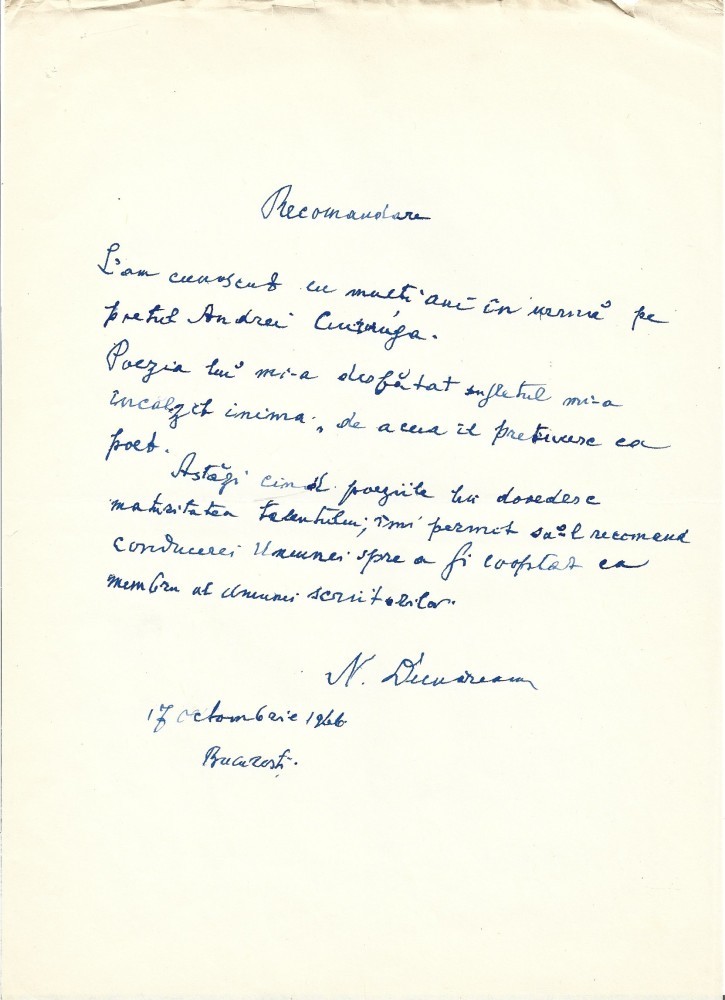 Recomandare
L'am cunoscut cu mulți ani în urmă pe
poetul Andrei Ciurunga.
Poezia lui mi-a desfătat sufletul mi-a
încălzit inima, de aceea îl prețuiesc ca
poet.
Astăzi cînd poeziile lui dovedesc
maturitatea talentului, îmi permit să-l recomand
conducerei Uniunei spre a fi cooptat ca
membru al Uniunei scriitorilor.
N. Dunăreanu
17 octombrie 1966
București.